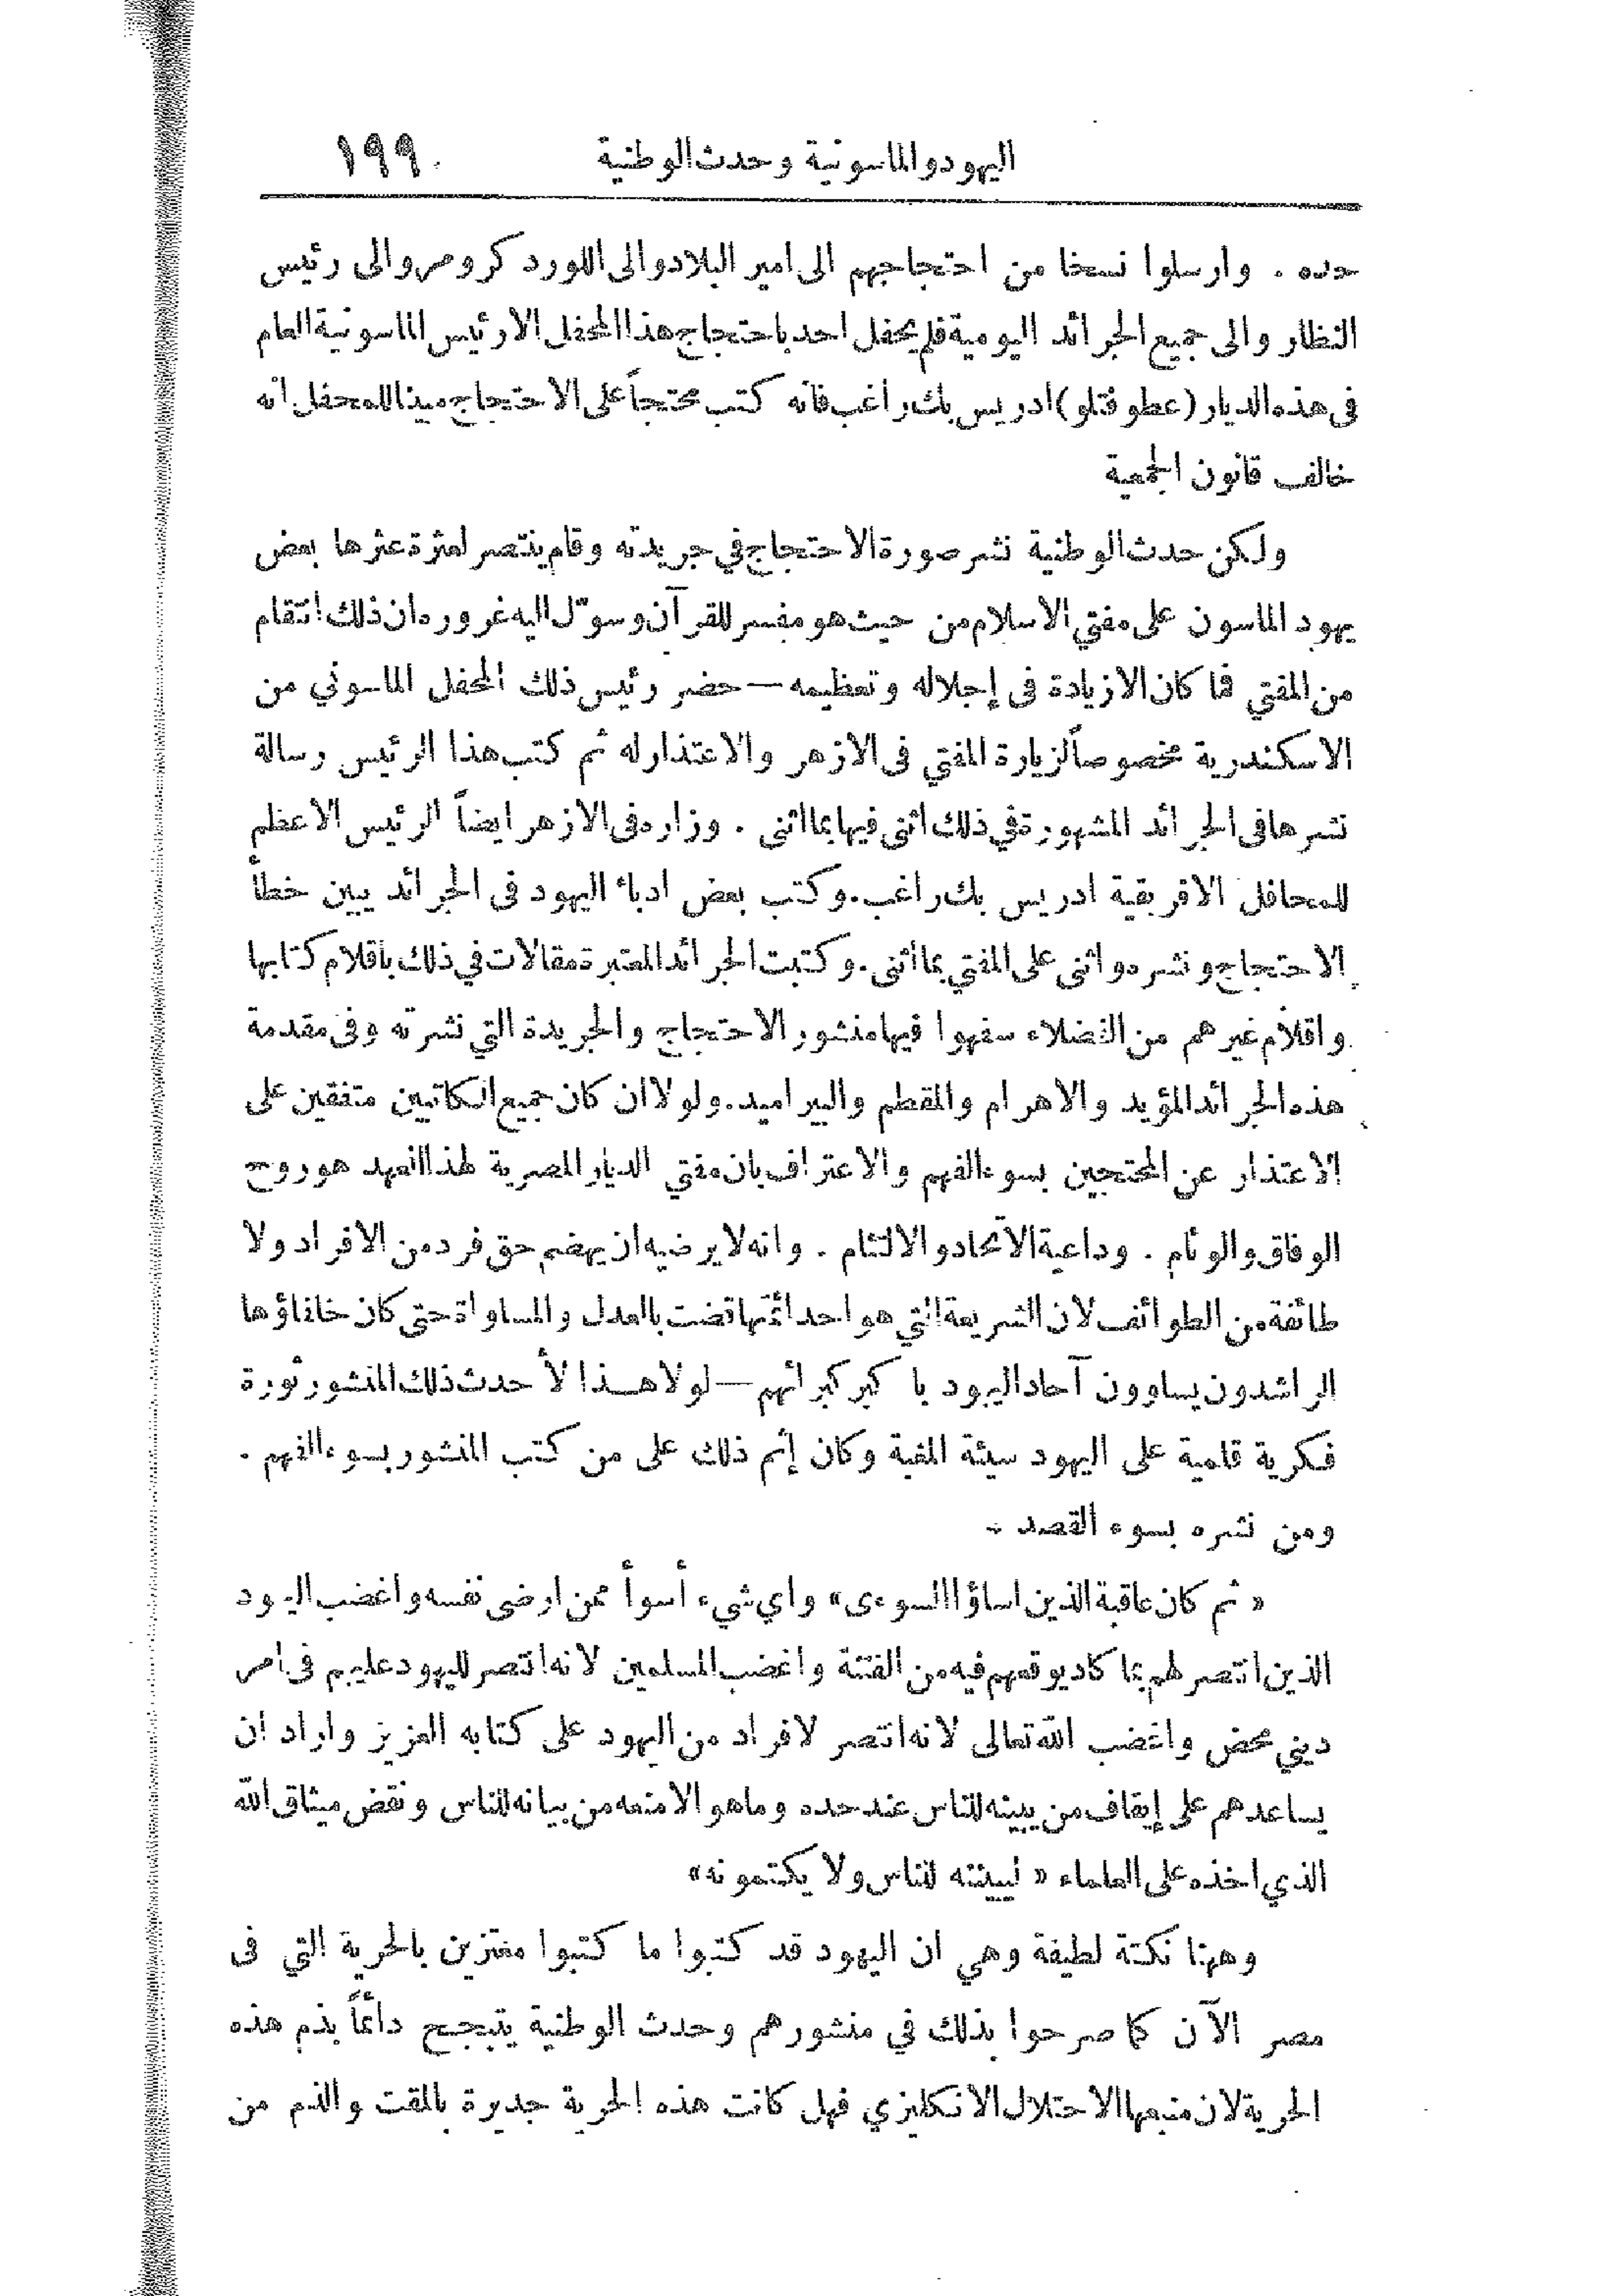 اليهود والماسونية وحدث الوطنية ١٩٩
حده . وارسلوا نسخا من احتجاجهم الى امير البلاد والى اللورد كرومر والى رئيس
النظار والى جميع الجرائد اليومية فلم يحفل احد باحتجاج هذا المحفل الا رئيس الماسونية العام
فى هذه الديار (عطوفتلو) ادريس بك راغب فانه كتب محتجاً على الاحتجاج مبينا للمحفل انه
خالف قانون الجمعية
ولكن حدث الوطنية نشر صورة الاحتجاج في جريدته وقام ينتصر لعثرة عثرها بعض
يهود الماسون على مفتي الاسلام من حيث هو مفسر للقرآن وسوّل اليه غروره ان ذلك انتقام
من المفتي فما كان الا زيادة فى إجلاله وتعظيمه — حضر رئيس ذلك المحفل الماسوني من
الاسكندرية مخصوصاً لزيارة المفتي فى الازهر والاعتذار له ثم كتب هذا الرئيس رسالة
نشرها فى الجرائد المشهورة في ذلك اثنى فيها بما اثنى . وزاره فى الازهر ايضاً الرئيس الاعظم
للمحافل الافريقية ادريس بك راغب. وكتب بعض ادباء اليهود فى الجرائد يبين خطأ
الاحتجاج ونشره واثنى على المفتي بما اثنى. وكتبت الجرائد المعتبرة مقالات في ذلك باقلام كتابها
واقلام غيرهم من الفضلاء سفهوا فيها منشور الاحتجاج والجريدة التي نشرته وفى مقدمة
هذه الجرائد المؤيد والاهرام والمقطم والبيراميد. ولولا ان كان جميع الكاتبين متفقين على
الاعتذار عن المحتجين بسوء الفهم والاعتراف بان مفتي الديار المصرية لهذا العهد هو روح
الوفاق والوئام . وداعية الاتحاد والالتئام . وانه لا يرضيه ان يهضم حق فرد من الافراد ولا
طائفة من الطوائف لان الشريعة التي هو احد ائمتها قضت بالعدل والمساواة حتى كان خلفاؤها
الراشدون يساوون آحاد اليهود با كبر كبرائهم — لولا هــذا لأحدث ذلك المنشور ثورة
فكرية قلمية على اليهود سيئة المغبة وكان إثم ذلك على من كتب المنشور بسوء الفهم .
ومن نشره بسوء القصد .
« ثم كان عاقبة الذين اساؤا السوءى» واي شيء أسوأ ممن ارضى نفسه واغضب اليهود
الذين انتصر لهم بما كاد يوقعهم فيه من الفتنة واغضب المسلمين لانه انتصر لليهود عليهم فى امر
ديني محض واغضب الله تعالى لانه انتصر لافراد من اليهود على كتابه العزيز واراد ان
يساعدهم على إيقاف من يبينه للناس عند حده وما هو الا منعه من بيانه للناس ونقض ميثاق الله
الذي اخذه على العلماء « ليبيننه للناس ولا يكتمونه»
وههنا نكتة لطيفة وهي ان اليهود قد كتبوا ما كتبوا معتزين بالحرية التي فى
مصر الآن كما صرحوا بذلك في منشورهم وحدث الوطنية يتبجح دائماً بذم هذه
الحرية لان منبعها الاحتلال الانكليزي فهل كانت هذه الحرية جديرة بالمقت والذم من